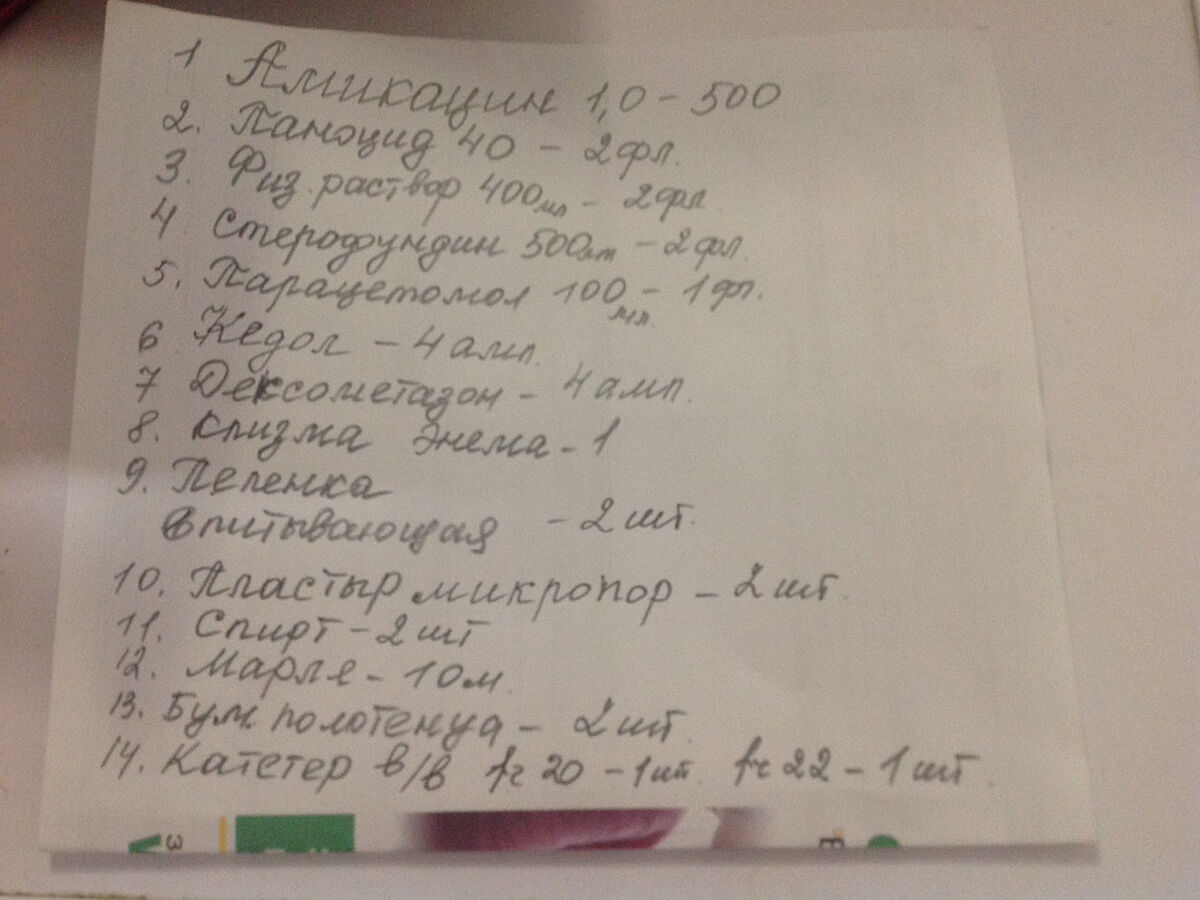 1 Амикацин 1,0 - 500
2. Паноцид 40 - 2 фл.
3. Физ. раствор 400 мл - 2 фл
4 Стерофундин 500 мл - 2 фл.
5. Парацетомол 100 мл - 1 фл.
6 Кедол - 4 амп.
7 Дексометазон - 4 амп.
8. Клизма Энема - 1
9. Пеленка
впитывающая - 2 шт.
10. Пластыр микропор - 2 шт.
11. Спирт - 2 шт
12. Марля - 10 м
13. Бум. полотенца - 2 шт.
14. Катетер в/в 20 - 1 шт. 22 - 1 шт.